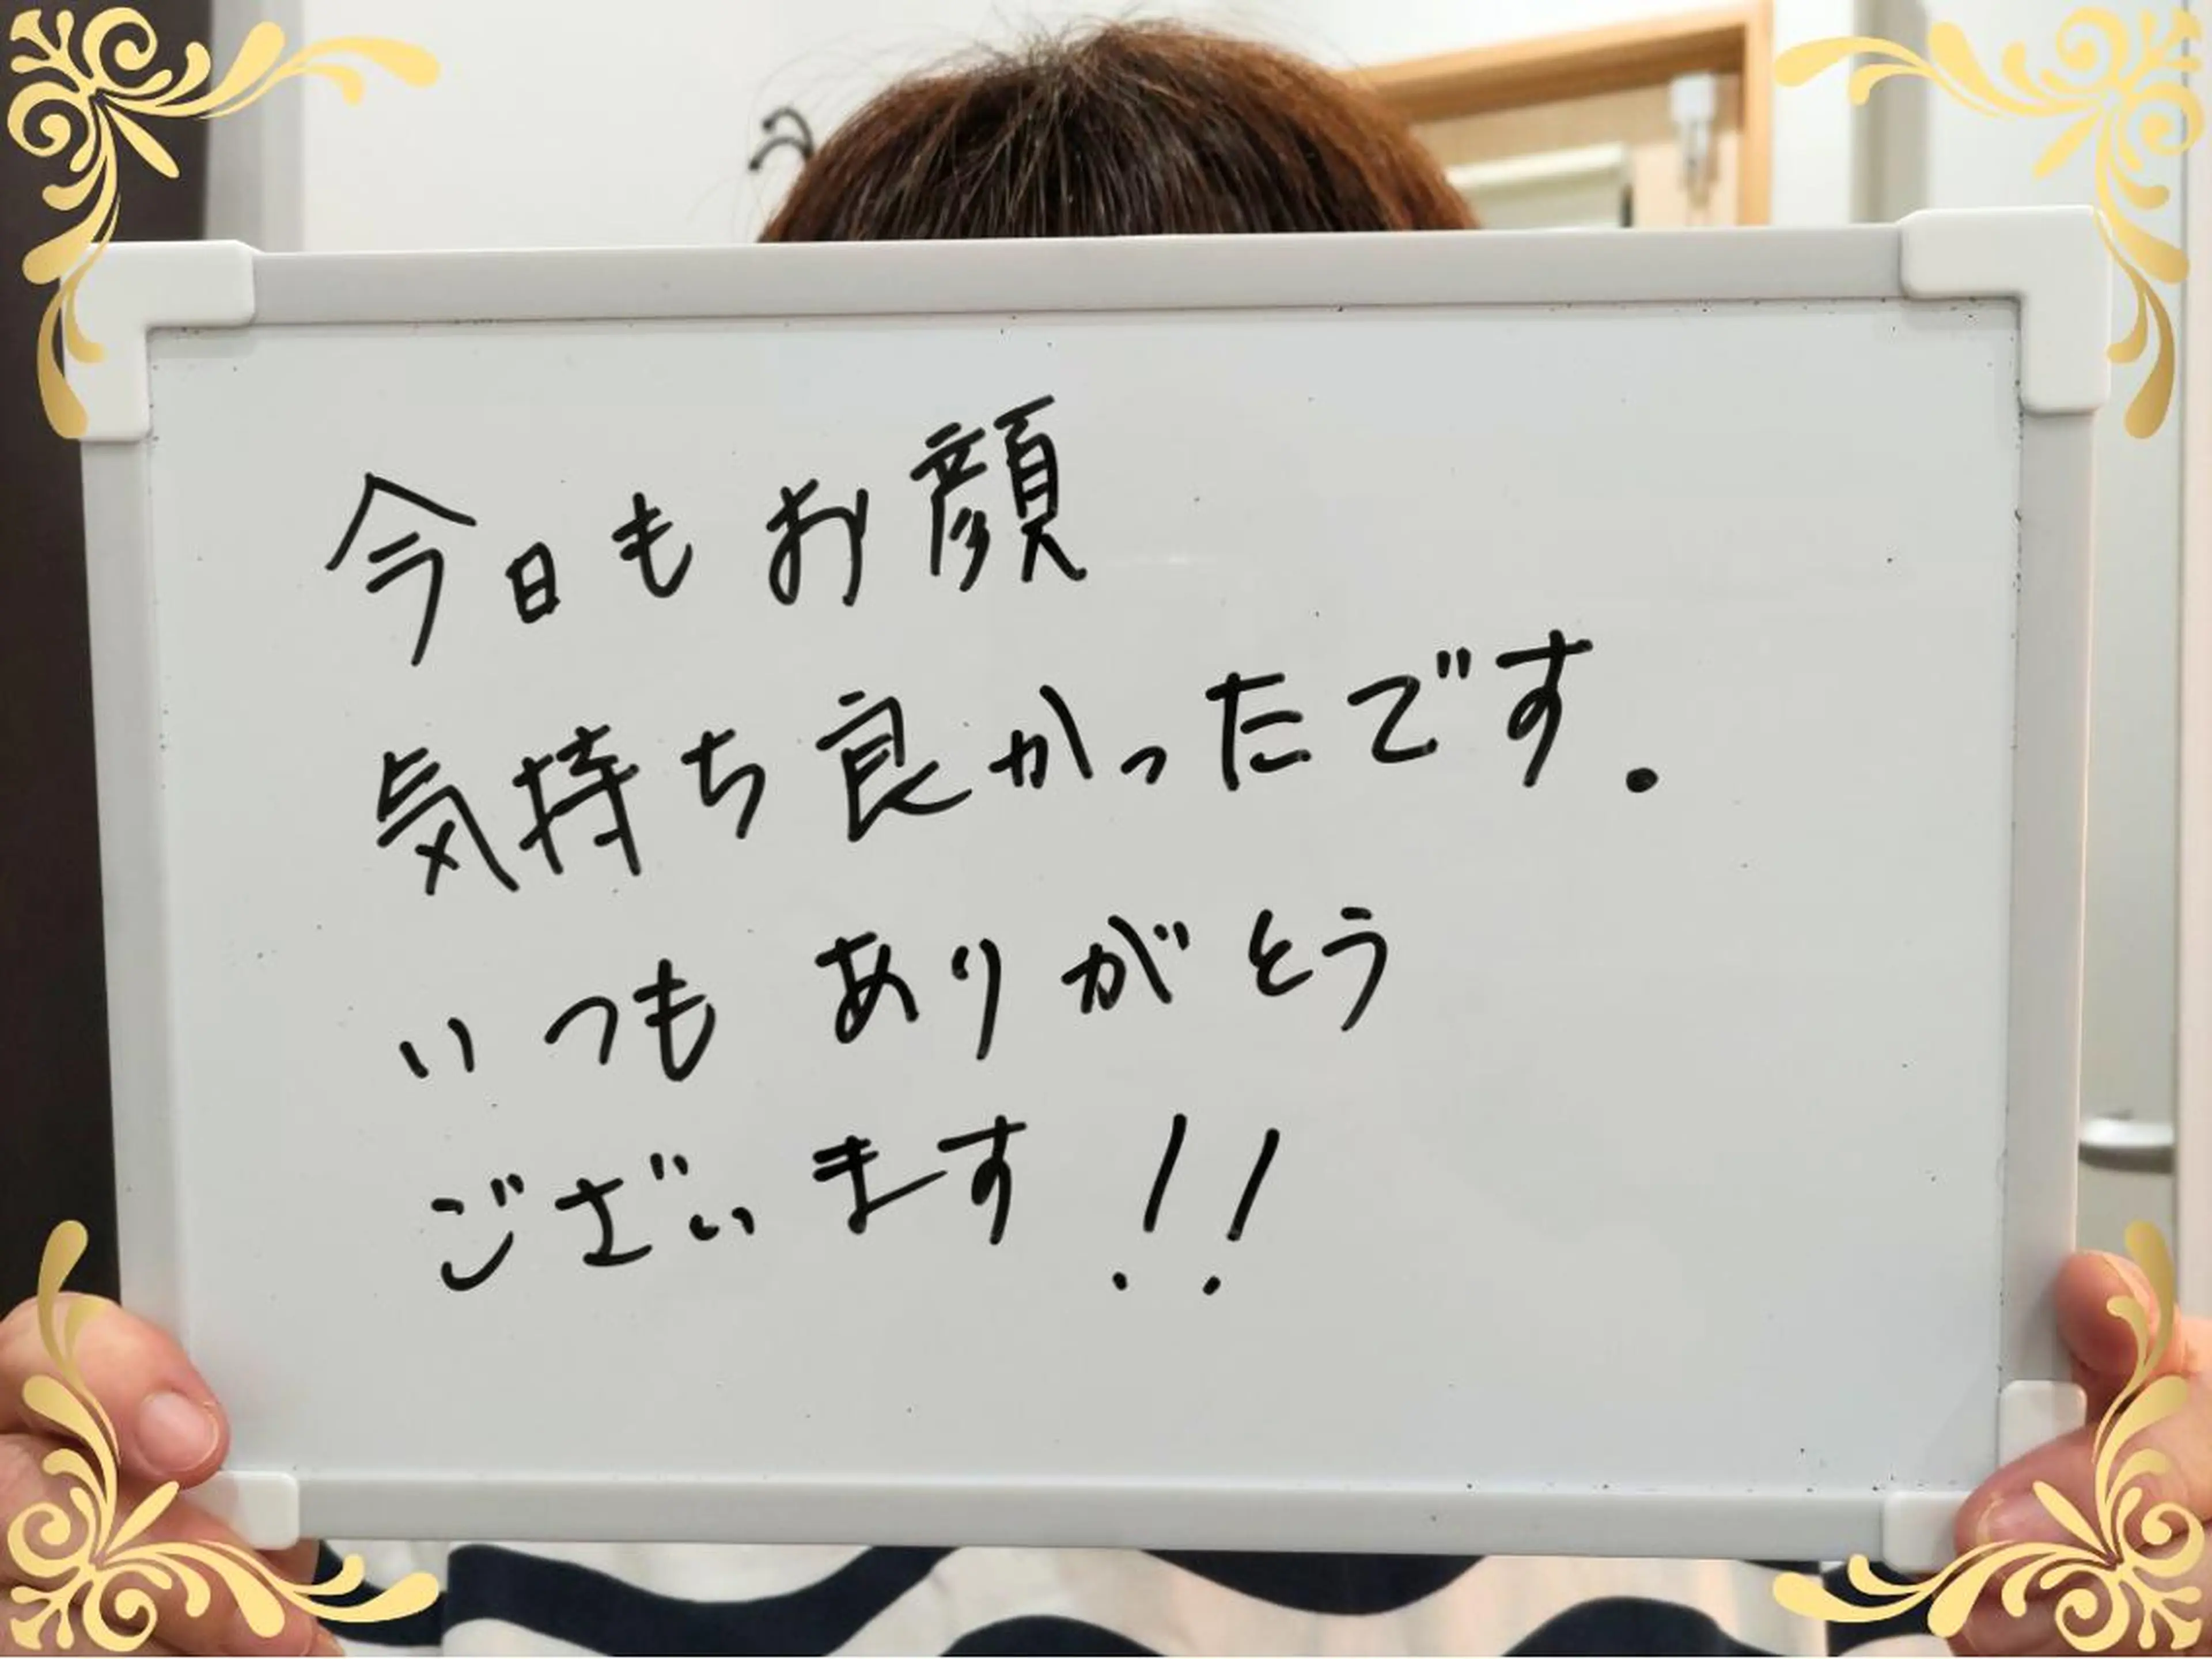 今日もお顔
気持ち良かったです.
いつもありがとう
ございます!!